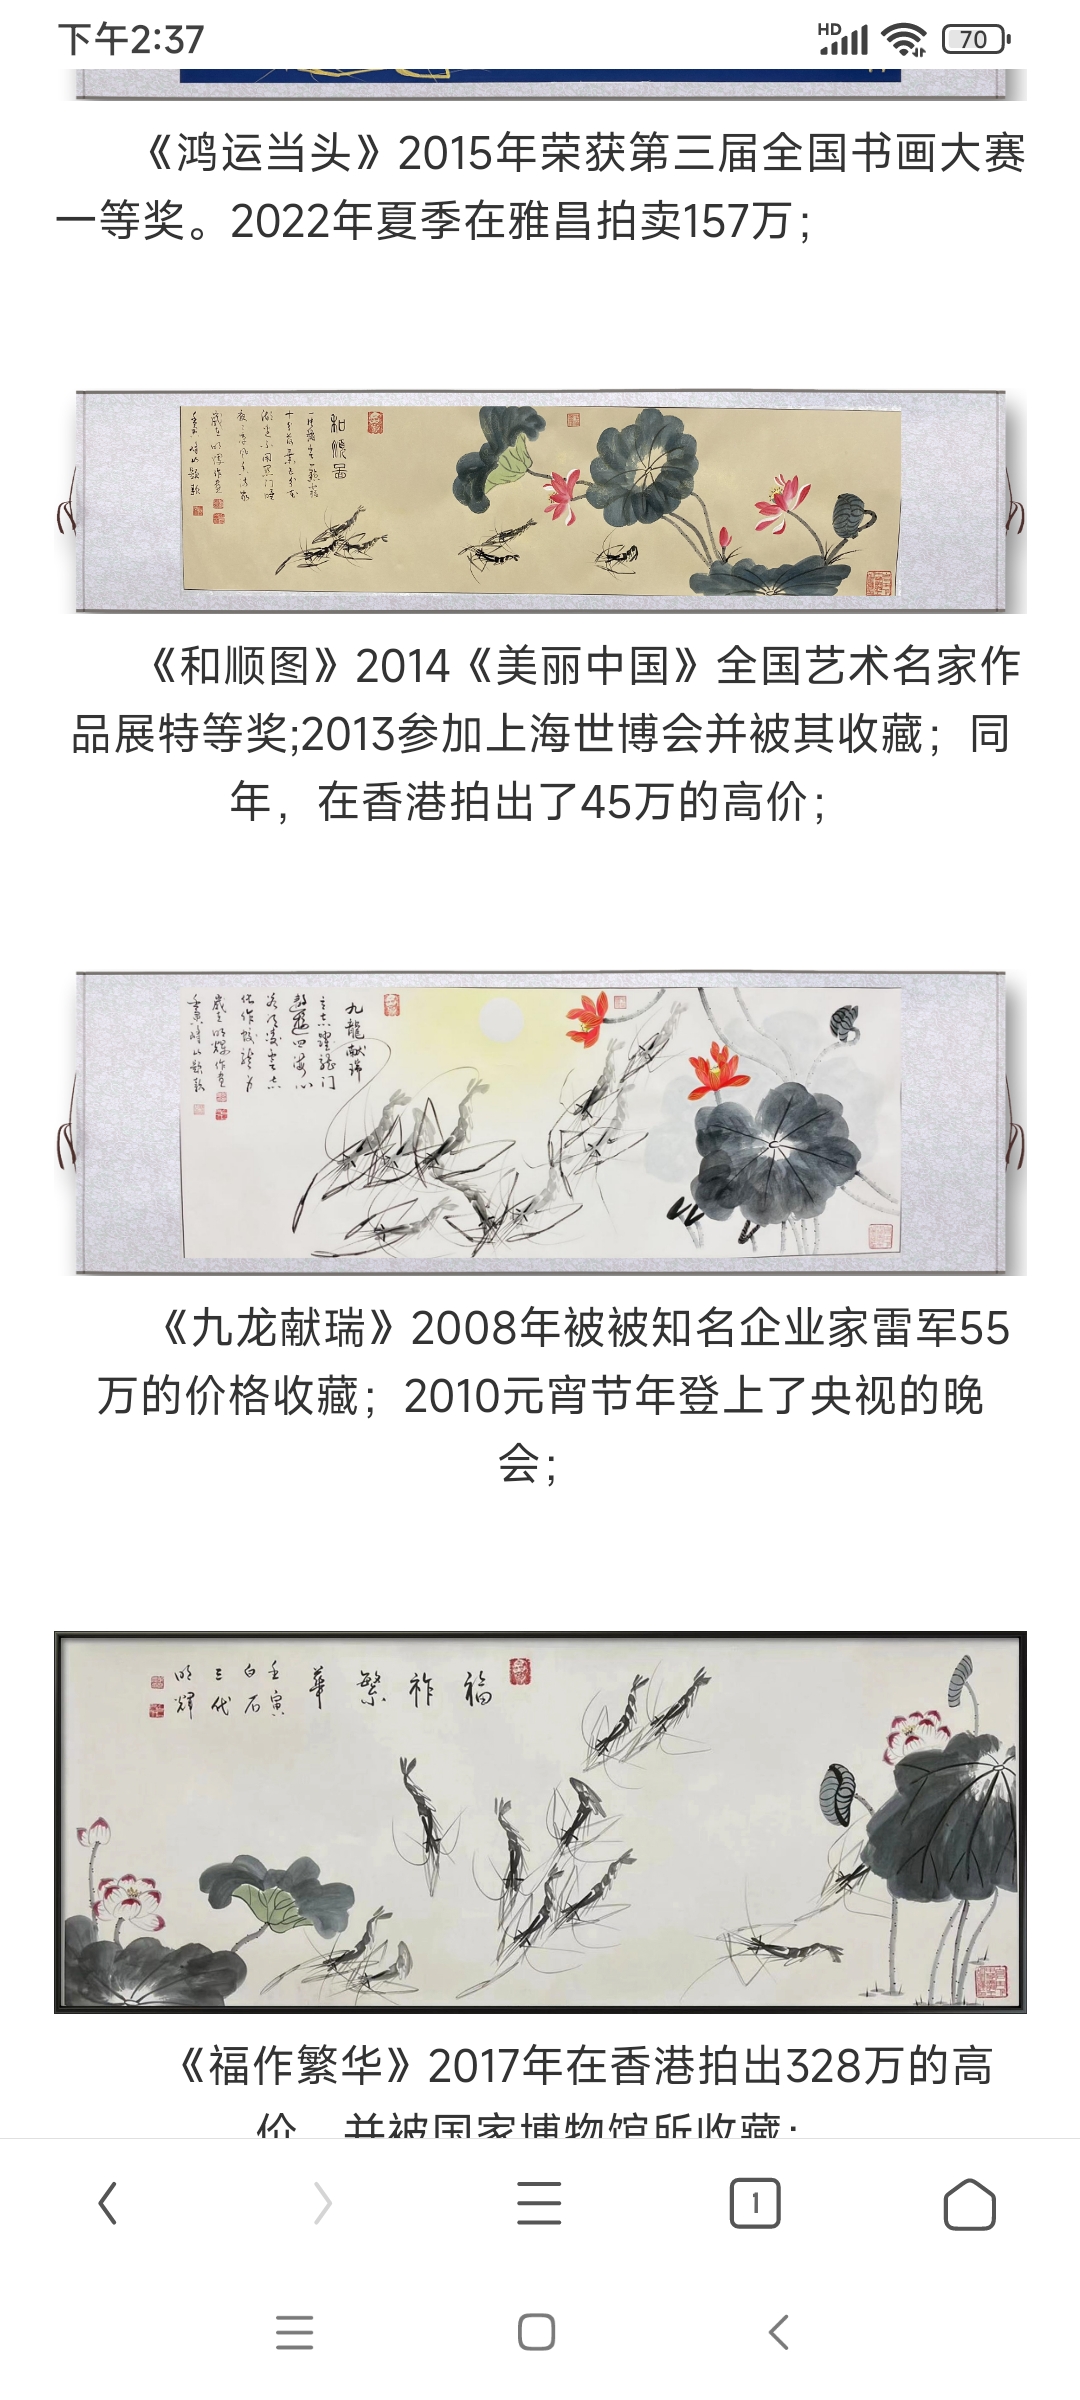 下午2:37
HD
70
《鸿运当头》2015年荣获第三届全国书画大赛
一等奖。2022年夏季在雅昌拍卖157万；
和順圖
《和顺图》2014《美丽中国》全国艺术名家作
品展特等奖;2013参加上海世博会并被其收藏；同
年，在香港拍出了45万的高价；
九龍献瑞
《九龙献瑞》2008年被被知名企业家雷军55
万的价格收藏；2010元宵节年登上了央视的晚
会；
福祚繁華
壬寅
白石
三代
明輝
《福作繁华》2017年在香港拍出328万的高
价，并被国家博物馆所收藏；
1